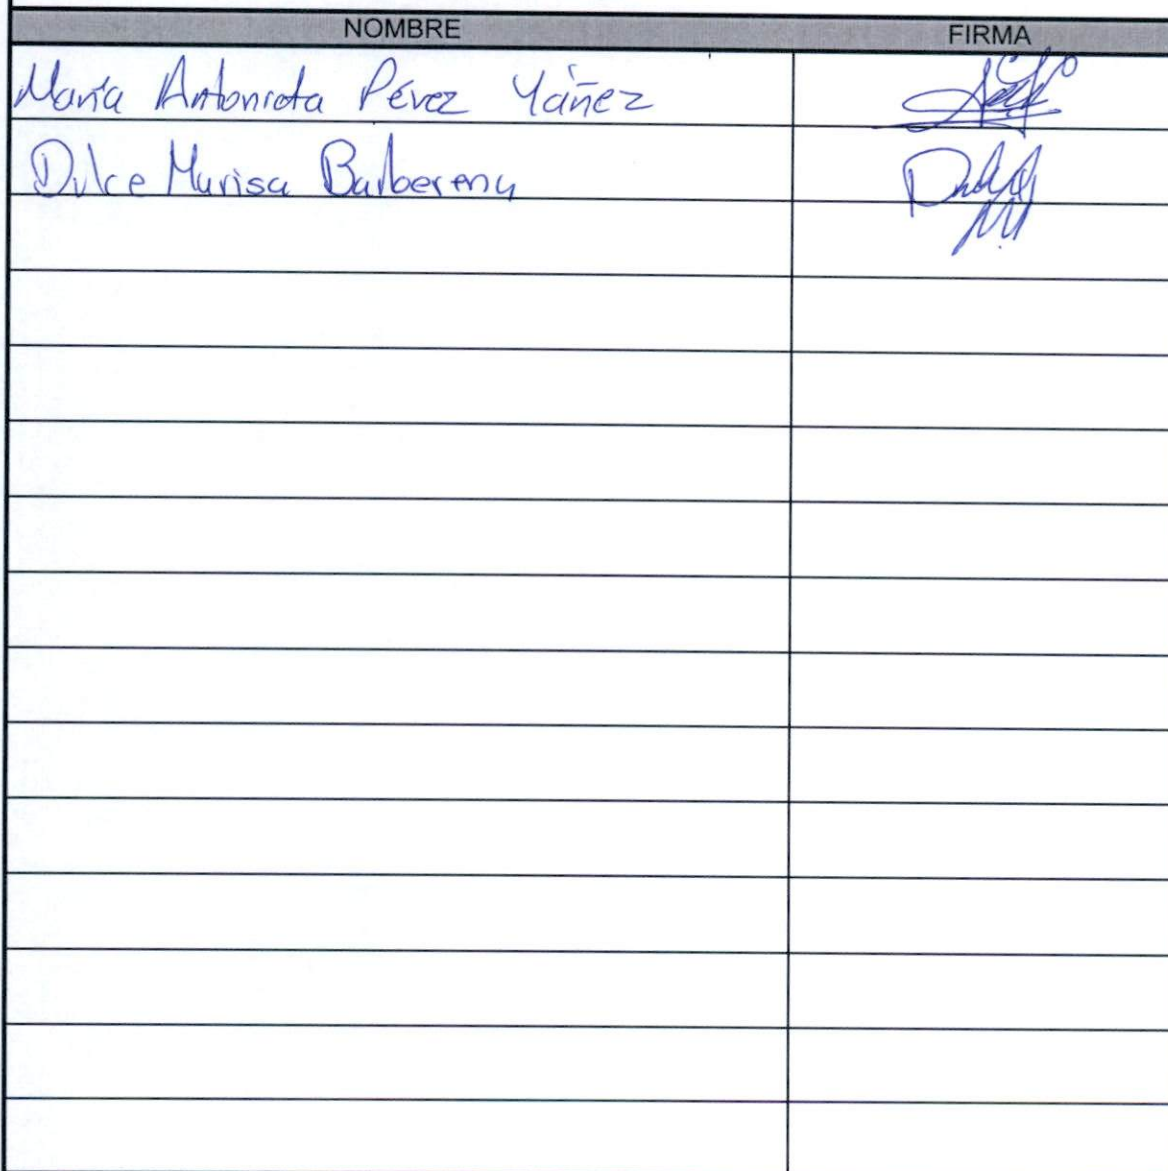 NOMBRE FIRMA
María Antonieta Pérez Yáñez
Dulce Marisa Barberena